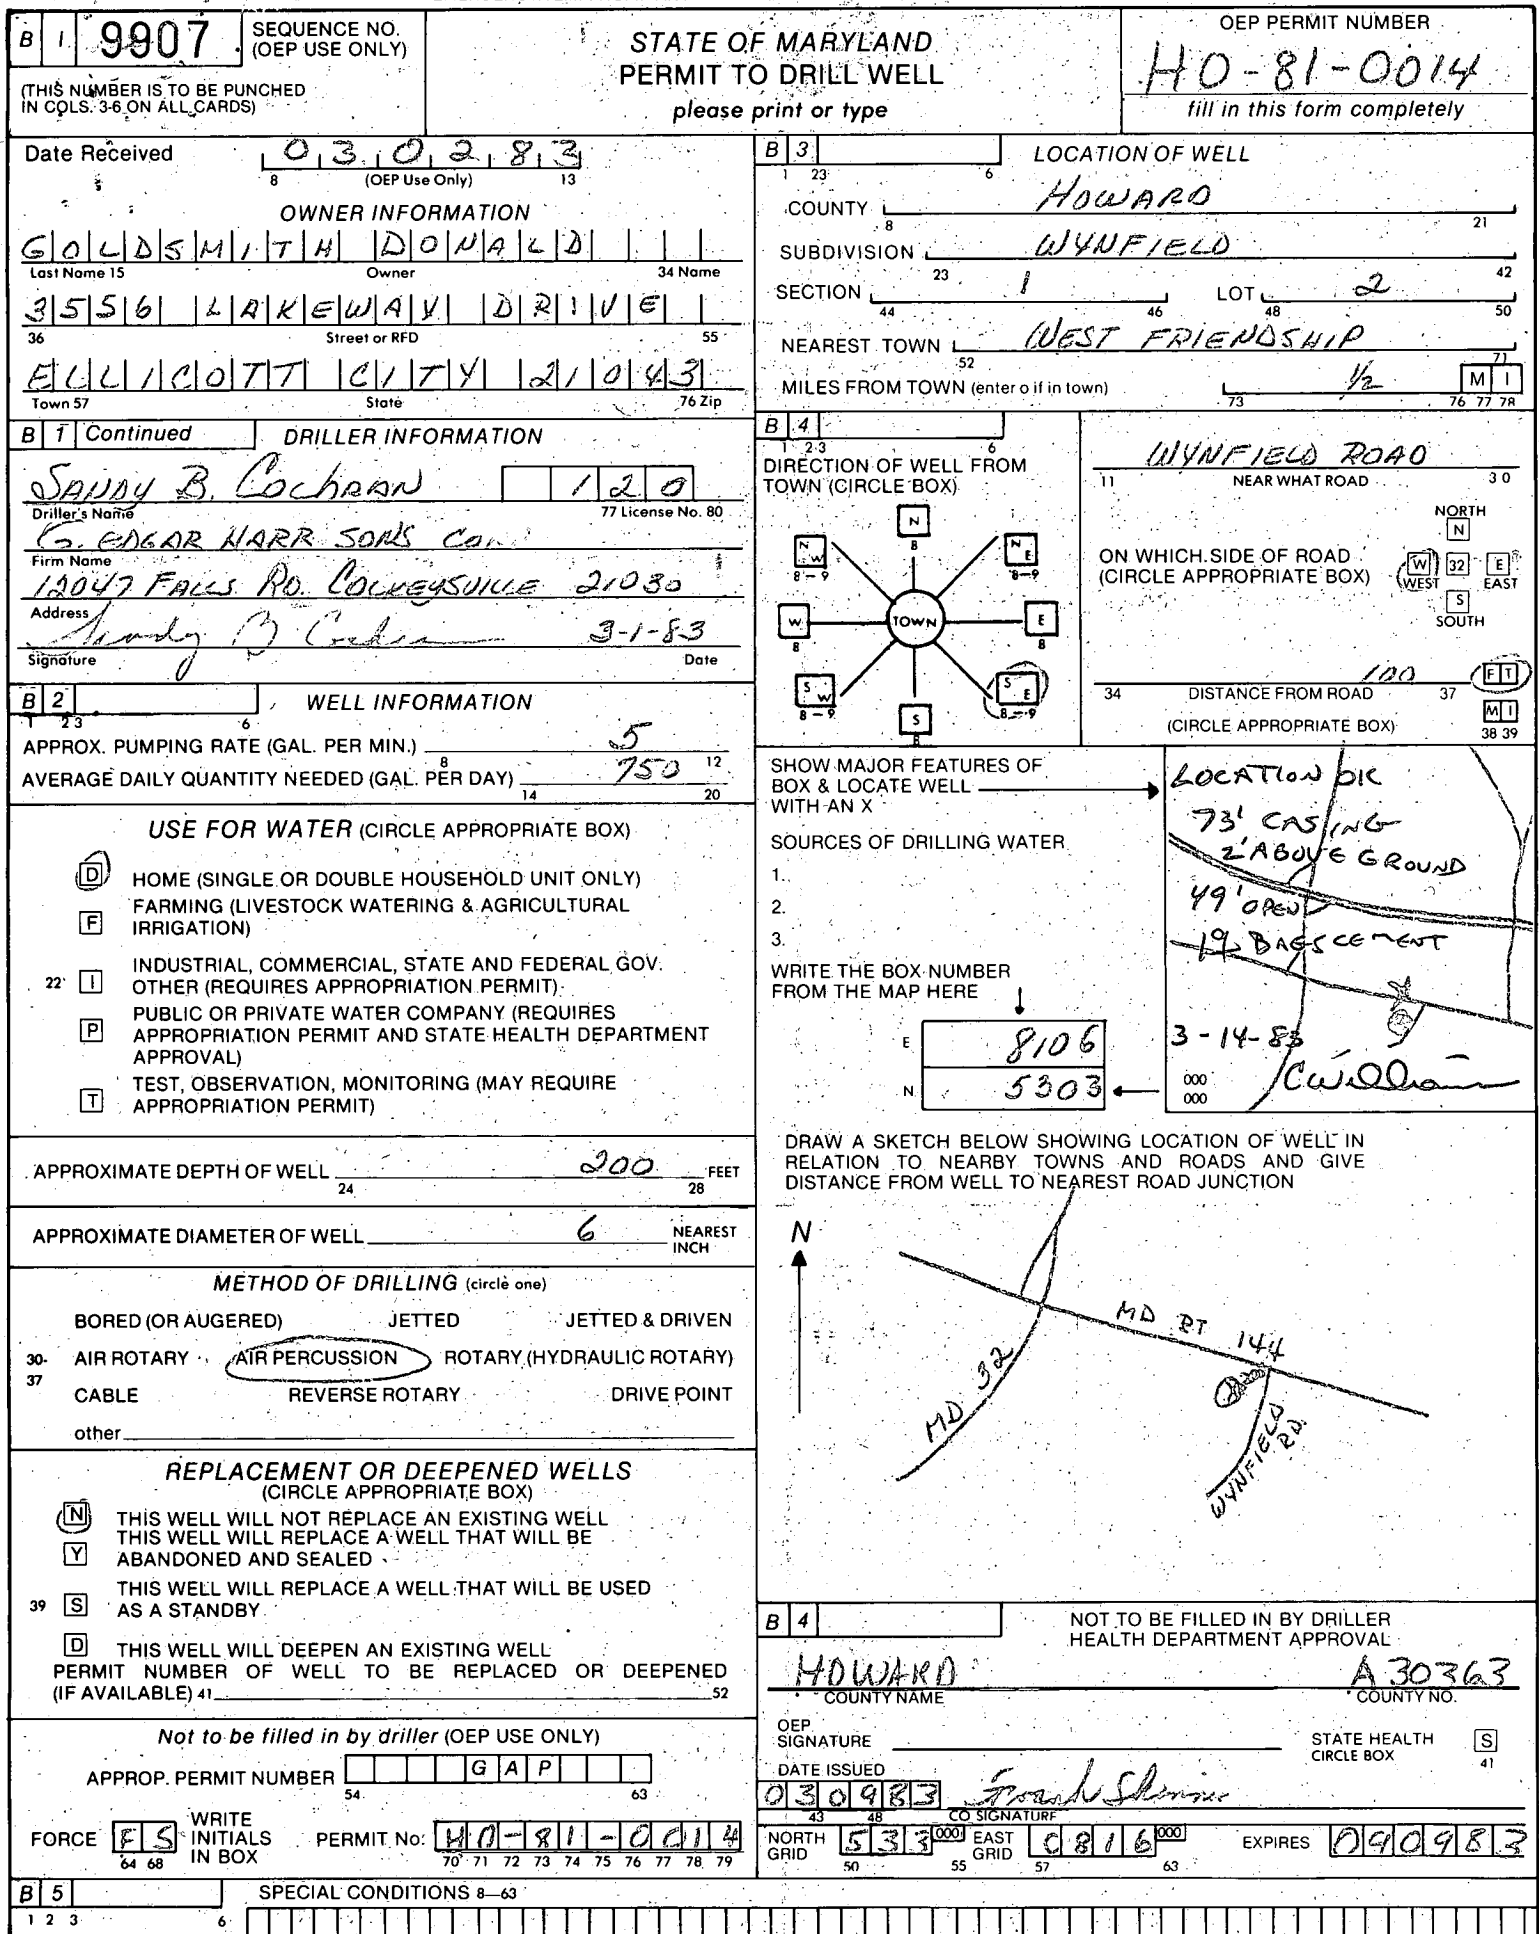 B 1 9907 SEQUENCE NO. (OEP USE ONLY)
(THIS NUMBER IS TO BE PUNCHED
IN COLS. 3-6 ON ALL CARDS)
STATE OF MARYLAND
PERMIT TO DRILL WELL
please print or type
OEP PERMIT NUMBER
HO-81-0014
fill in this form completely
Date Received 030283
8 (OEP Use Only) 13
OWNER INFORMATION
GOLDSMITH DONALD
Last Name 15 Owner 34 Name
3556 LAKEWAY DRIVE
36 Street or RFD 55
ELLICOTT CITY 21043
Town 57 State 76 Zip
B 1 Continued DRILLER INFORMATION
SANDY B. COCHRAN 120
Driller's Name 77 License No. 80
G. EDGAR HARR SONS CO.
Firm Name
12047 FALLS RD. COCKEYSVILLE 21030
Address
Sandy B Cochran 3-1-83
Signature Date
B 2 WELL INFORMATION
1 2 3 6
APPROX. PUMPING RATE (GAL. PER MIN.) 5
8 12
AVERAGE DAILY QUANTITY NEEDED (GAL. PER DAY) 750
14 20
USE FOR WATER (CIRCLE APPROPRIATE BOX)
D HOME (SINGLE OR DOUBLE HOUSEHOLD UNIT ONLY)
F FARMING (LIVESTOCK WATERING & AGRICULTURAL
IRRIGATION)
22 I INDUSTRIAL, COMMERCIAL, STATE AND FEDERAL GOV.
OTHER (REQUIRES APPROPRIATION PERMIT)
P PUBLIC OR PRIVATE WATER COMPANY (REQUIRES
APPROPRIATION PERMIT AND STATE HEALTH DEPARTMENT
APPROVAL)
T TEST, OBSERVATION, MONITORING (MAY REQUIRE
APPROPRIATION PERMIT)
APPROXIMATE DEPTH OF WELL 200 FEET
24 28
APPROXIMATE DIAMETER OF WELL 6 NEAREST
INCH
METHOD OF DRILLING (circle one)
BORED (OR AUGERED) JETTED JETTED & DRIVEN
30-37 AIR ROTARY AIR PERCUSSION ROTARY (HYDRAULIC ROTARY)
CABLE REVERSE ROTARY DRIVE POINT
other
REPLACEMENT OR DEEPENED WELLS
(CIRCLE APPROPRIATE BOX)
N THIS WELL WILL NOT REPLACE AN EXISTING WELL
Y THIS WELL WILL REPLACE A WELL THAT WILL BE
ABANDONED AND SEALED
39 S THIS WELL WILL REPLACE A WELL THAT WILL BE USED
AS A STANDBY
D THIS WELL WILL DEEPEN AN EXISTING WELL
PERMIT NUMBER OF WELL TO BE REPLACED OR DEEPENED
(IF AVAILABLE) 41 52
Not to be filled in by driller (OEP USE ONLY)
APPROP. PERMIT NUMBER GAP
54 63
FORCE FS WRITE INITIALS IN BOX PERMIT No: HO-81-0014
64 68 70 71 72 73 74 75 76 77 78 79
B 3 LOCATION OF WELL
1 23 6
COUNTY HOWARD
8 21
SUBDIVISION WYNFIELD
23 42
SECTION 1 LOT 2
44 46 48 50
NEAREST TOWN WEST FRIENDSHIP
52 71
MILES FROM TOWN (enter o if in town) 1/2 M I
73 76 77 78
B 4
1 23 6
DIRECTION OF WELL FROM
TOWN (CIRCLE BOX)
N
8
N W N E
8-9 8-9
W TOWN E
8 8
S W S E
8-9 8-9
S
8
WYNFIELD ROAD
11 NEAR WHAT ROAD 30
ON WHICH SIDE OF ROAD
(CIRCLE APPROPRIATE BOX)
NORTH
N
W 32 E
WEST EAST
S
SOUTH
100 F T
34 DISTANCE FROM ROAD 37
(CIRCLE APPROPRIATE BOX) M I
38 39
SHOW MAJOR FEATURES OF
BOX & LOCATE WELL
WITH AN X
SOURCES OF DRILLING WATER
1.
2.
3.
WRITE THE BOX NUMBER
FROM THE MAP HERE
E 8106
N 5303
LOCATION OK
73' CASING
2' ABOVE GROUND
49' OPEN
19 BAGS CEMENT
3-14-83
000
000
CWilliams
DRAW A SKETCH BELOW SHOWING LOCATION OF WELL IN
RELATION TO NEARBY TOWNS AND ROADS AND GIVE
DISTANCE FROM WELL TO NEAREST ROAD JUNCTION
N
MD RT 144
MD 32
WYNFIELD RD.
B 4 NOT TO BE FILLED IN BY DRILLER
HEALTH DEPARTMENT APPROVAL
HOWARD A30363
COUNTY NAME COUNTY NO.
OEP
SIGNATURE
STATE HEALTH
CIRCLE BOX S
41
DATE ISSUED
030983 Frank Skinner
43 48 CO SIGNATURE
NORTH GRID 533 000 EAST GRID 0816 000 EXPIRES 090983
50 55 57 63
B 5 SPECIAL CONDITIONS 8-63
1 2 3 6